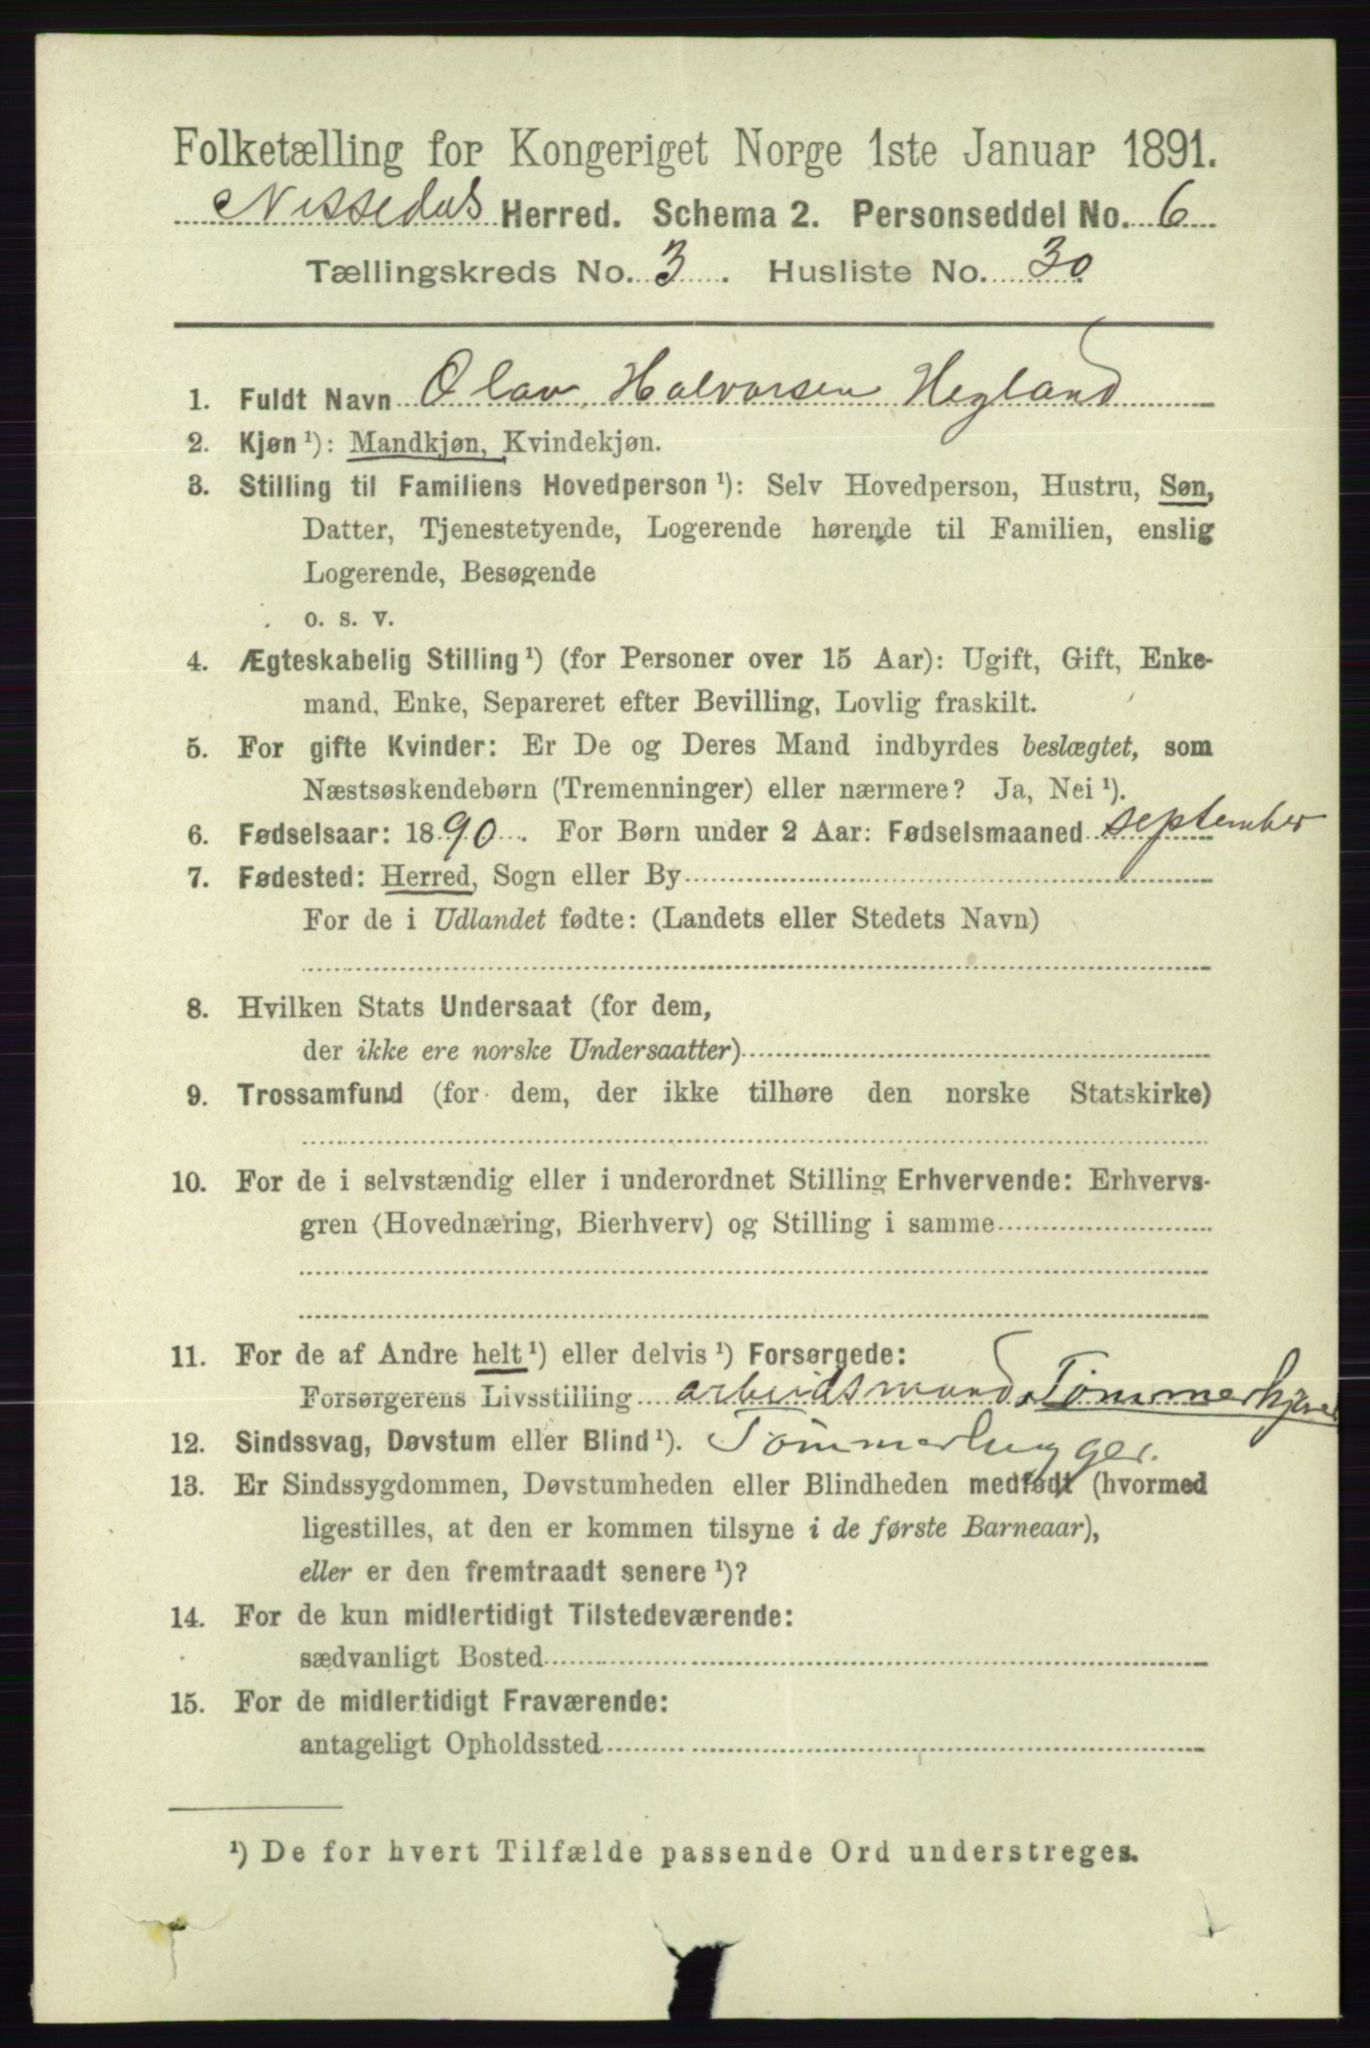 Folketælling for Kongeriget Norge 1ste Januar 1891.
Nissedals Herred. Schema 2. Personseddel No. 6
Tællingskreds No. 3. Husliste No. 30
1. Fuldt Navn Olav Halvorsen Hegland
2. Kjøn ¹): Mandkjøn, Kvindekjøn.
3. Stilling til Familiens Hovedperson ¹): Selv Hovedperson, Hustru, Søn,
Datter, Tjenestetyende, Logerende hørende til Familien, enslig
Logerende, Besøgende
o. s. v.
4. Ægteskabelig Stilling ¹) (for Personer over 15 Aar): Ugift, Gift, Enke-
mand, Enke, Separeret efter Bevilling, Lovlig fraskilt.
5. For gifte Kvinder: Er De og Deres Mand indbyrdes beslægtet, som
Næstsøskendebørn (Tremenninger) eller nærmere? Ja, Nei ¹).
6. Fødselsaar: 1890. For Børn under 2 Aar: Fødselsmaaned september
7. Fødested: Herred, Sogn eller By
For de i Udlandet fødte: (Landets eller Stedets Navn)
8. Hvilken Stats Undersaat (for dem,
der ikke ere norske Undersaatter)
9. Trossamfund (for dem, der ikke tilhøre den norske Statskirke)
10. For de i selvstændig eller i underordnet Stilling Erhvervende: Erhvervs-
gren (Hovednæring, Bierhverv) og Stilling i samme
11. For de af Andre helt ¹) eller delvis ¹) Forsørgede:
Forsørgerens Livsstilling arbeidsmand, Tømmerkjører
12. Sindssvag, Døvstum eller Blind ¹). Tømmerhugger.
13. Er Sindssygdommen, Døvstumheden eller Blindheden medfødt (hvormed
ligestilles, at den er kommen tilsyne i de første Barneaar),
eller er den fremtraadt senere ¹)?
14. For de kun midlertidigt Tilstedeværende:
sædvanligt Bosted
15. For de midlertidigt Fraværende:
antageligt Opholdssted
¹) De for hvert Tilfælde passende Ord understreges.